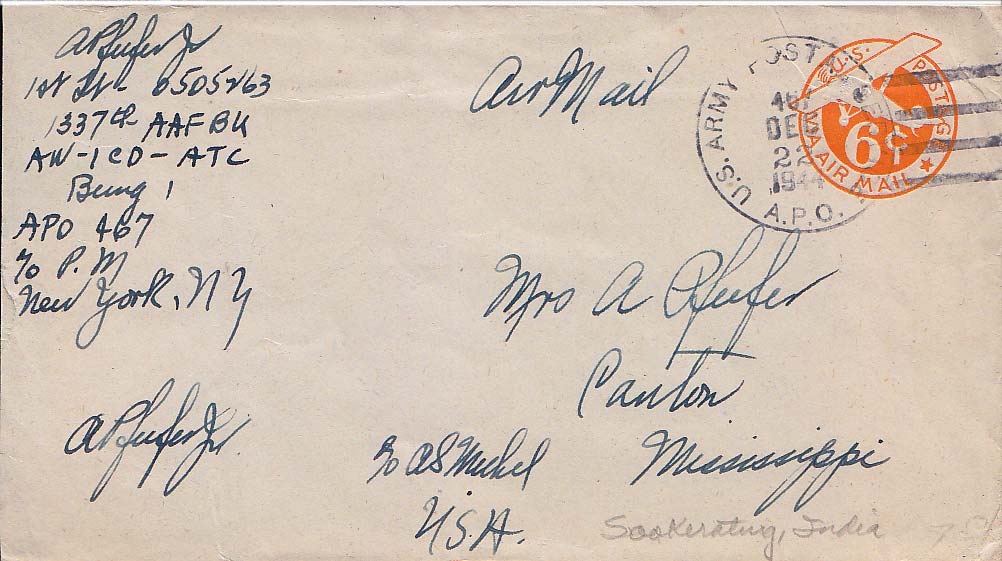 A Pfeifer Jr
1st Lt - 0505263
1337th AAFBU
AW-ICD-ATC
APO 467
c/o P.M
New York, NY
Air Mail
U.S. ARMY POSTAL
DEC
22
1944
A.P.O.
U.S. POSTAGE
VIA AIR MAIL
6¢
Mrs A Pfeifer
Canton
Mississippi
c/o AS Michel
U.S.A.
A Pfeifer Jr
Sookerating, India